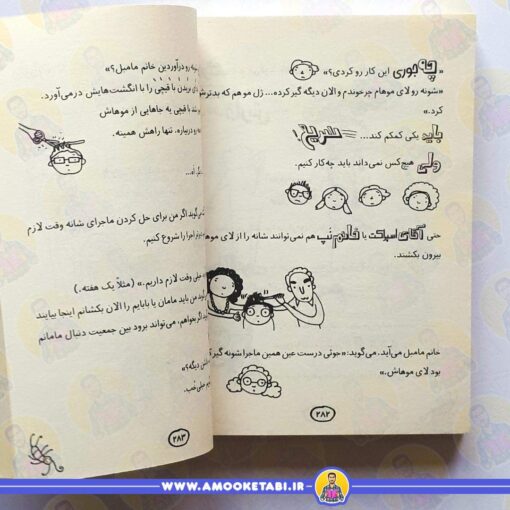 «چه جوری این کار رو کردی؟»
«شونه رو لای موهام چرخوندم و الان دیگه گیر کرده... ژل مو هم که بدترش
کرد.»
باید یکی کمکم کند... سریع!
ولی هیچ‌کس نمی‌داند باید چه‌کار کنیم.
حتی آقای اسپراکت یا خانم نَپ هم نمی‌توانند شانه را از لای موهام
بیرون بکشند.
خانم مامبل می‌آید. می‌گوید: «جوئی درست عین همین ماجرا شونه گیر
بود لای موهاش.»
۲۸۲
شونه رو درآوردین خانم مامبل؟»
بریدن با قیچی را با انگشت‌هایش درمی‌آورد.
با قیچی یه جاهایی از موهاش
دوباره. تنها راهش همینه.
گوید اگر من برای حل کردن ماجرای شانه وقت لازم
ماجرا را شروع کنیم.
خیلی وقت لازم داریم.» (مثلاً یک هفته.)
من باید مامان یا بابایم را الان بکشانم اینجا بیایند
اگر بخواهم، می‌تواند برود بین جمعیت دنبال مامانم
دیگه؟»
خیلی خُب.
۲۸۳
WWW.AMOOKETABI.IR